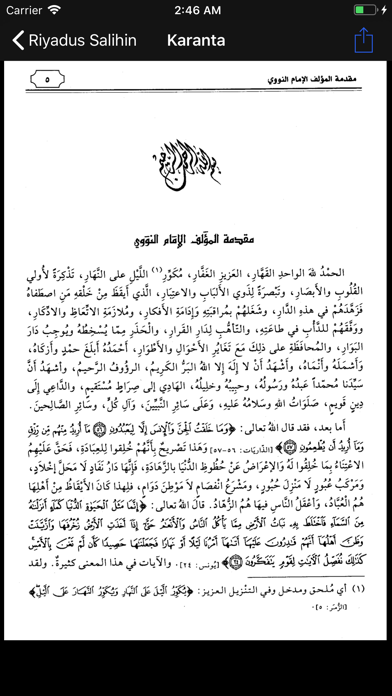 Carrier 2:46 AM
Riyadus Salihin Karanta
مقدمة المؤلف الإمام النووي ٥
بسم الله الرحمن الرحيم
مقدمة المؤلف الإمام النووي
الحمدُ للهَ الواحدِ القَهَّارِ، العَزيزِ الغَفَّارِ، مُكَوِّرِ(١) اللَّيْلِ على النَّهَارِ، تَذْكِرَةً لأُولي
القُلُوبِ والأَبصَارِ، وتَبْصرَةً لِذَوي الأَلبَابِ والاعتِبَارِ، الَّذي أَيقَظَ مِنْ خَلْقهِ مَنِ اصطَفاهُ
فَزَهَّدَهُمْ في هذهِ الدَّارِ، وشَغَلهُمْ بمُراقبَتِهِ وَإِدَامَةِ الأَفكارِ، ومُلازَمَةِ الاتِّعَاظِ والادِّكَارِ،
ووَفَّقَهُمْ للدَّأْبِ في طاعَتِهِ، والتَّأَهُّبِ لِدَارِ القَرارِ، والْحَذَرِ مِمّا يُسْخِطُهُ ويُوجِبُ دَارَ
البَوَارِ، والمُحافَظَةِ على ذلِكَ مَعَ تَغَايُرِ الأَحْوَالِ والأَطْوَارِ، أَحْمَدُهُ أَبلَغَ حمْدٍ وأَزكَاهُ،
وَأَشمَلَهُ وأَنْمَاهُ، وأَشْهَدُ أَنْ لا إِلهَ إِلا اللهُ البَرُّ الكَرِيمُ، الرؤُوفُ الرَّحيمُ، وأشهَدُ أَنَّ
سَيِّدَنا مُحمّداً عَبدُهُ ورَسُولُهُ، وحبِيبُهُ وخلِيلُهُ، الهَادِي إلى صِرَاطٍ مُسْتَقيمٍ، والدَّاعِي إلى
دِينٍ قَويمٍ، صَلَوَاتُ اللهِ وسَلامُهُ عَليهِ، وَعَلَى سَائِرِ النَّبيِّينَ، وَآلِ كُلٍّ، وسَائِرِ الصَّالِحينَ.
أَما بعد، فقد قال اللهُ تعالى: ﴿وَمَا خَلَقْتُ ٱلْجِنَّ وَٱلْإِنسَ إِلَّا لِيَعْبُدُونِ ﴿٥٦﴾ مَآ أُرِيدُ مِنْهُم مِّن رِّزْقٍ
وَمَآ أُرِيدُ أَن يُطْعِمُونِ ﴿٥٧﴾﴾ [الذّاريَات: ٥٦-٥٧] وَهَذا تَصْريحٌ بِأَنَّهُمْ خُلِقوا لِلعِبَادَةِ، فَحَقَّ عَلَيْهِمُ
الاعْتِنَاءُ بِمَا خُلِقُوا لَهُ وَالإِعْرَاضُ عَنْ حُظُوظِ الدُّنْيَا بالزَّهَادَةِ، فَإِنَّهَا دَارُ نَفَادٍ لاَ مَحَلُّ إخْلاَدٍ،
وَمَرْكَبُ عُبُورٍ لاَ مَنْزِلُ حُبُورٍ، ومَشْرَعُ انْفصَامٍ لاَ مَوْطِنُ دَوَامٍ، فلِهذا كانَ الأَيْقَاظُ مِنْ أَهْلِهَا
هُمُ العُبَّادُ، وَأعْقَلُ النَّاسِ فيهَا هُمُ الزُّهّادُ. قالَ اللهُ تعالى: ﴿إِنَّمَا مَثَلُ ٱلْحَيَوٰةِ ٱلدُّنْيَا كَمَآءٍ أَنزَلْنَٰهُ
مِنَ ٱلسَّمَآءِ فَٱخْتَلَطَ بِهِۦ نَبَاتُ ٱلْأَرْضِ مِمَّا يَأْكُلُ ٱلنَّاسُ وَٱلْأَنْعَٰمُ حَتَّىٰٓ إِذَآ أَخَذَتِ ٱلْأَرْضُ زُخْرُفَهَا وَٱزَّيَّنَتْ
وَظَنَّ أَهْلُهَآ أَنَّهُمْ قَٰدِرُونَ عَلَيْهَآ أَتَىٰهَآ أَمْرُنَا لَيْلًا أَوْ نَهَارًا فَجَعَلْنَٰهَا حَصِيدًا كَأَن لَّمْ تَغْنَ بِٱلْأَمْسِ
كَذَٰلِكَ نُفَصِّلُ ٱلْءَايَٰتِ لِقَوْمٍ يَتَفَكَّرُونَ ﴿٢٤﴾﴾ [يُونس: ٢٤]. والآيات في هذا المعنى كثيرةٌ. ولقد
(١) أي مُلحق ومدخل وفي التنْزيل العزيز: ﴿يُكَوِّرُ ٱلَّيْلَ عَلَى ٱلنَّهَارِ وَيُكَوِّرُ ٱلنَّهَارَ عَلَى ٱلَّيْلِ﴾
[الزُّمَر: ٥].